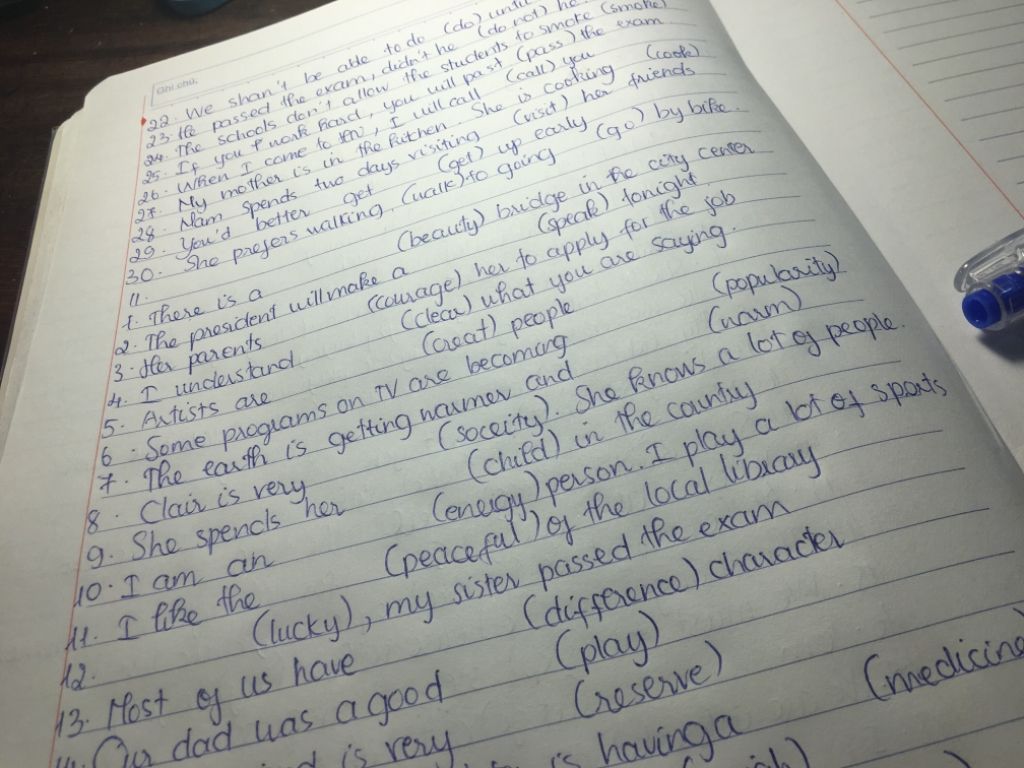 Ghi chú,
22. We shan't be able to do (do) until he
23. He passed the exam, didn't he (do not)
24. The schools don't allow the students to smoke (smoke)
25. If you work hard, you will past (pass) the exam
26. When I come to, I will call (call) you
27. My mother is in the kitchen She is cooking (cook)
28. Nam spends two days visiting (visit) her friends
29. You'd better get (get) up early
30. She prefers walking (walk) to going (go) by bike.
II.
1. There is a (beauty) bridge in the city center
2. The president will make a (speak) tonight
3. Her parents (courage) her to apply for the job
4. I understand (clear) what you are saying.
5. Artists are (creat) people
6. Some programs on TV are becoming (popularity)
7. The earth is getting warmer and (warm)
8. Clair is very (soceity). She knows a lot of people.
9. She spends her (child) in the country
10. I am an (energy) person. I play a lot of sports
11. I like the (peaceful) of the local library
12. (lucky), my sister passed the exam
13. Most of us have (difference) character
14. Our dad was a good (play)
is very (reserve)
is having a (medicine